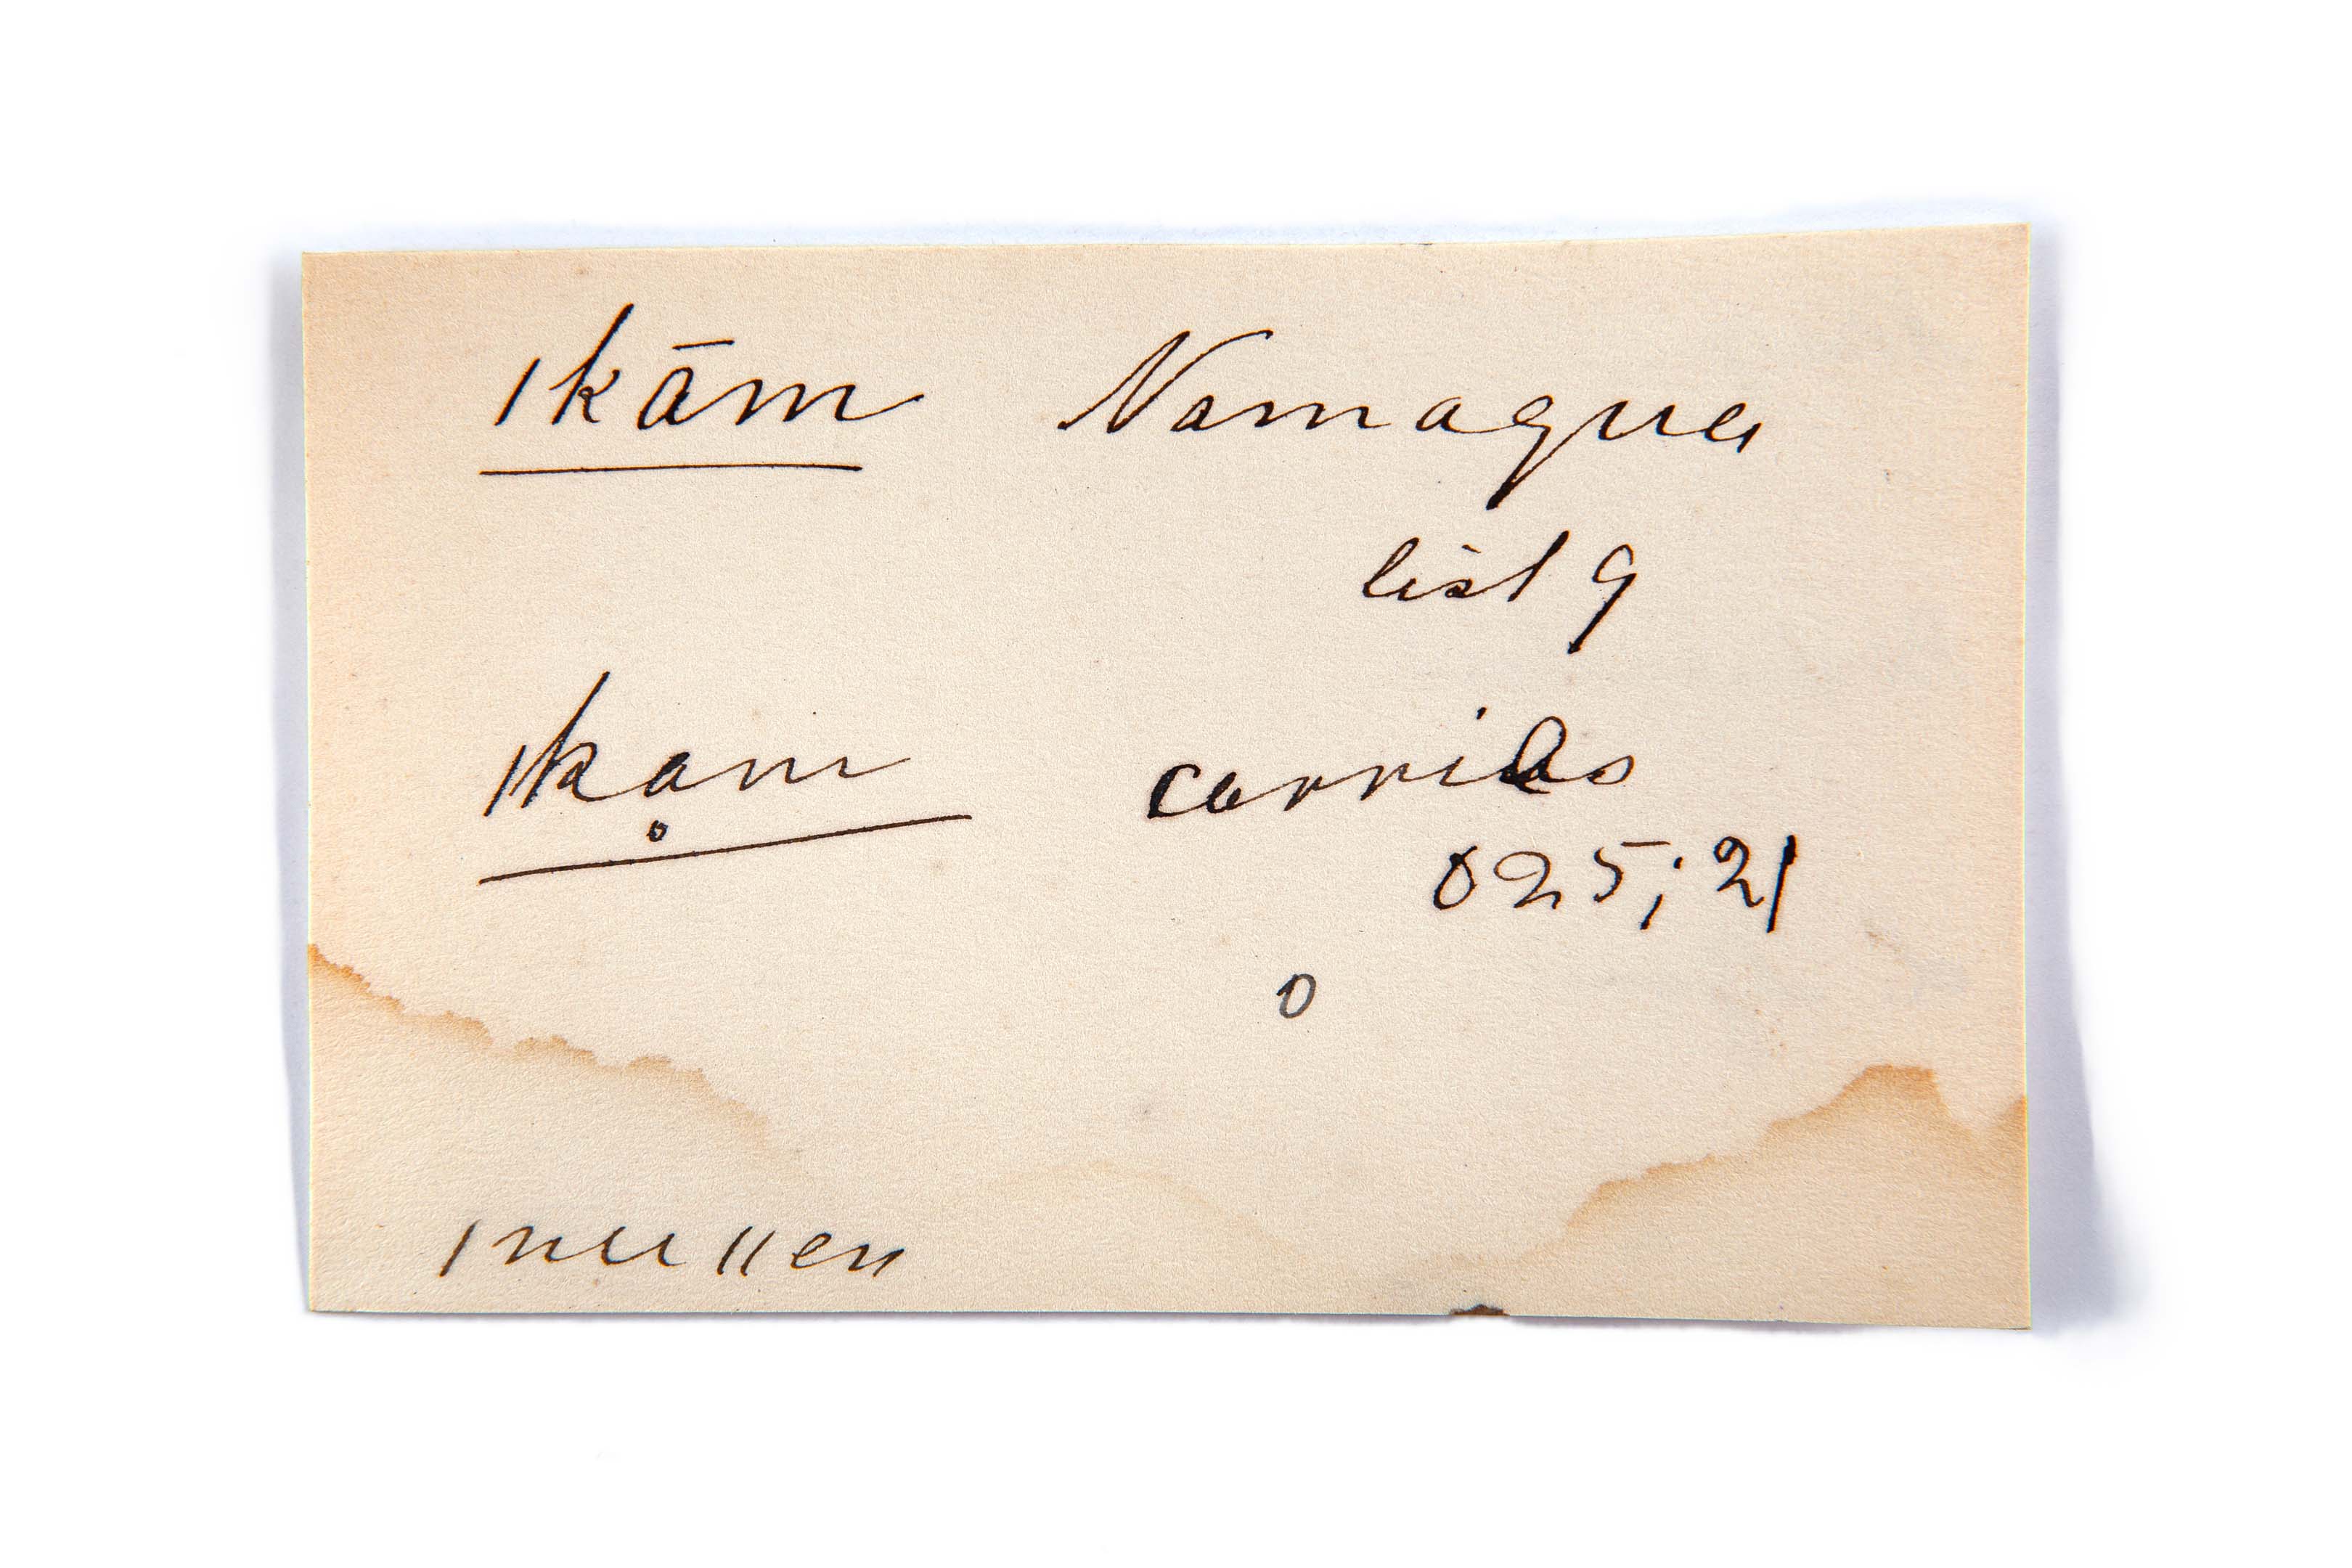 ǀkām Namaqua
list 9
ǀkḁm carries
025; 21
0
ǀnuǁen